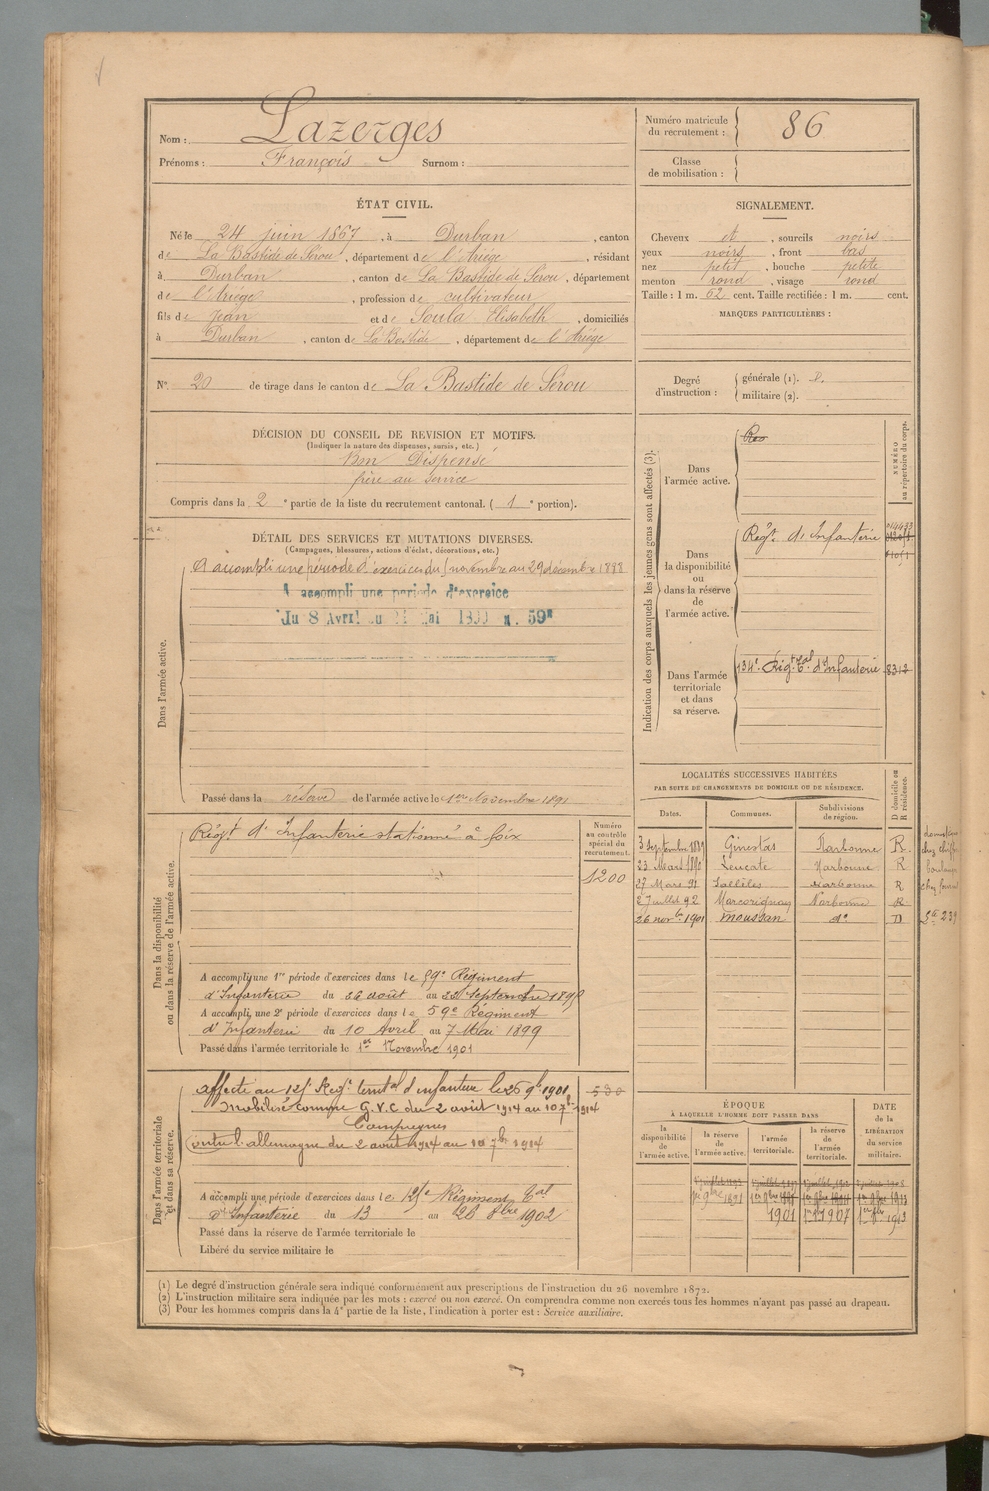 Nom : Lazerges
Prénoms : François Surnom :
Numéro matricule du recrutement : 86
Classe de mobilisation :
ÉTAT CIVIL.
Né le 24 juin 1867, à Durban, canton
de La Bastide de Sérou, département de l'Ariège, résidant
à Durban, canton de La Bastide de Sérou, département
de l'Ariège, profession de cultivateur
fils de Jean et de Soula Elisabeth, domiciliés
à Durban, canton de La Bastide, département de l'Ariège
SIGNALEMENT.
Cheveux et, sourcils noirs
yeux noirs, front bas
nez petit, bouche petite
menton rond, visage rond
Taille : 1 m. 62 cent. Taille rectifiée : 1 m. cent.
MARQUES PARTICULIÈRES :
N° 20 de tirage dans le canton de La Bastide de Sérou
Degré d'instruction :
générale (1).
militaire (2).
DÉCISION DU CONSEIL DE REVISION ET MOTIFS.
(Indiquer la nature des dispenses, sursis, etc.)
Bon Dispensé
frère au service
Compris dans la 2e partie de la liste du recrutement cantonal. (1e portion).
DÉTAIL DES SERVICES ET MUTATIONS DIVERSES.
(Campagnes, blessures, actions d'éclat, décorations, etc.)
Dans l'armée active.
A accompli une période d'exercices du novembre au 29 décembre 1888
A accompli une periode d'exercice
du 8 Avril au Mai 59e
Passé dans la réserve de l'armée active le 1er Novembre 1891
Indication des corps auxquels les jeunes gens sont affectés (3).
NUMÉRO au répertoire du corps.
Dans l'armée active.
Dans la disponibilité ou dans la réserve de l'armée active.
Régt d'Infanterie
014433
Dans l'armée territoriale et dans sa réserve.
134e Régt Tal d'Infanterie 8312
LOCALITÉS SUCCESSIVES HABITÉES
PAR SUITE DE CHANGEMENTS DE DOMICILE OU DE RÉSIDENCE.
D domicile ou R résidence.
Dates. Communes. Subdivisions de région.
3 Septembre Ginestas Narbonne R
23 Mars Leucate Narbonne R
27 Mars 91 Sallèles Narbonne R
27 juillet 92 Marcorignan Narbonne R
26 novbre 1901 Moussan do D
Dans la disponibilité ou dans la réserve de l'armée active.
Régt d'Infanterie stationné à Foix
Numéro au contrôle spécial du recrutement.
1200
A accompli une 1re période d'exercices dans le 59e Régiment
d'Infanterie du 26 août au Septembre
A accompli une 2e période d'exercices dans le 59e Régiment
d'Infanterie du 10 Avril au 7 Mai 1899
Passé dans l'armée territoriale le 1er Novembre 1901
Dans l'armée territoriale et dans sa réserve.
affecté au Régt territal d'infanterie le 26 9bre 1901
530
Mobilisé comme G.V.C du 2 août 1914 au 10 7bre 1914
Campagnes
Contre l'allemagne du 2 août 1914 au 10 7bre 1914
A accompli une période d'exercices dans le Régiment Tal
d'Infanterie du 13 au 8bre 1902
Passé dans la réserve de l'armée territoriale le
Libéré du service militaire le
ÉPOQUE
À LAQUELLE L'HOMME DOIT PASSER DANS
DATE de la LIBÉRATION du service militaire.
la disponibilité de l'armée active. la réserve de l'armée active. l'armée territoriale. la réserve de l'armée territoriale.
1er 9bre 1891
1901 1907 1913
(1) Le degré d'instruction générale sera indiqué conformément aux prescriptions de l'instruction du 26 novembre 1872.
(2) L'instruction militaire sera indiquée par les mots : exercé ou non exercé. On comprendra comme non exercés tous les hommes n'ayant pas passé au drapeau.
(3) Pour les hommes compris dans la 4e partie de la liste, l'indication à porter est : Service auxiliaire.